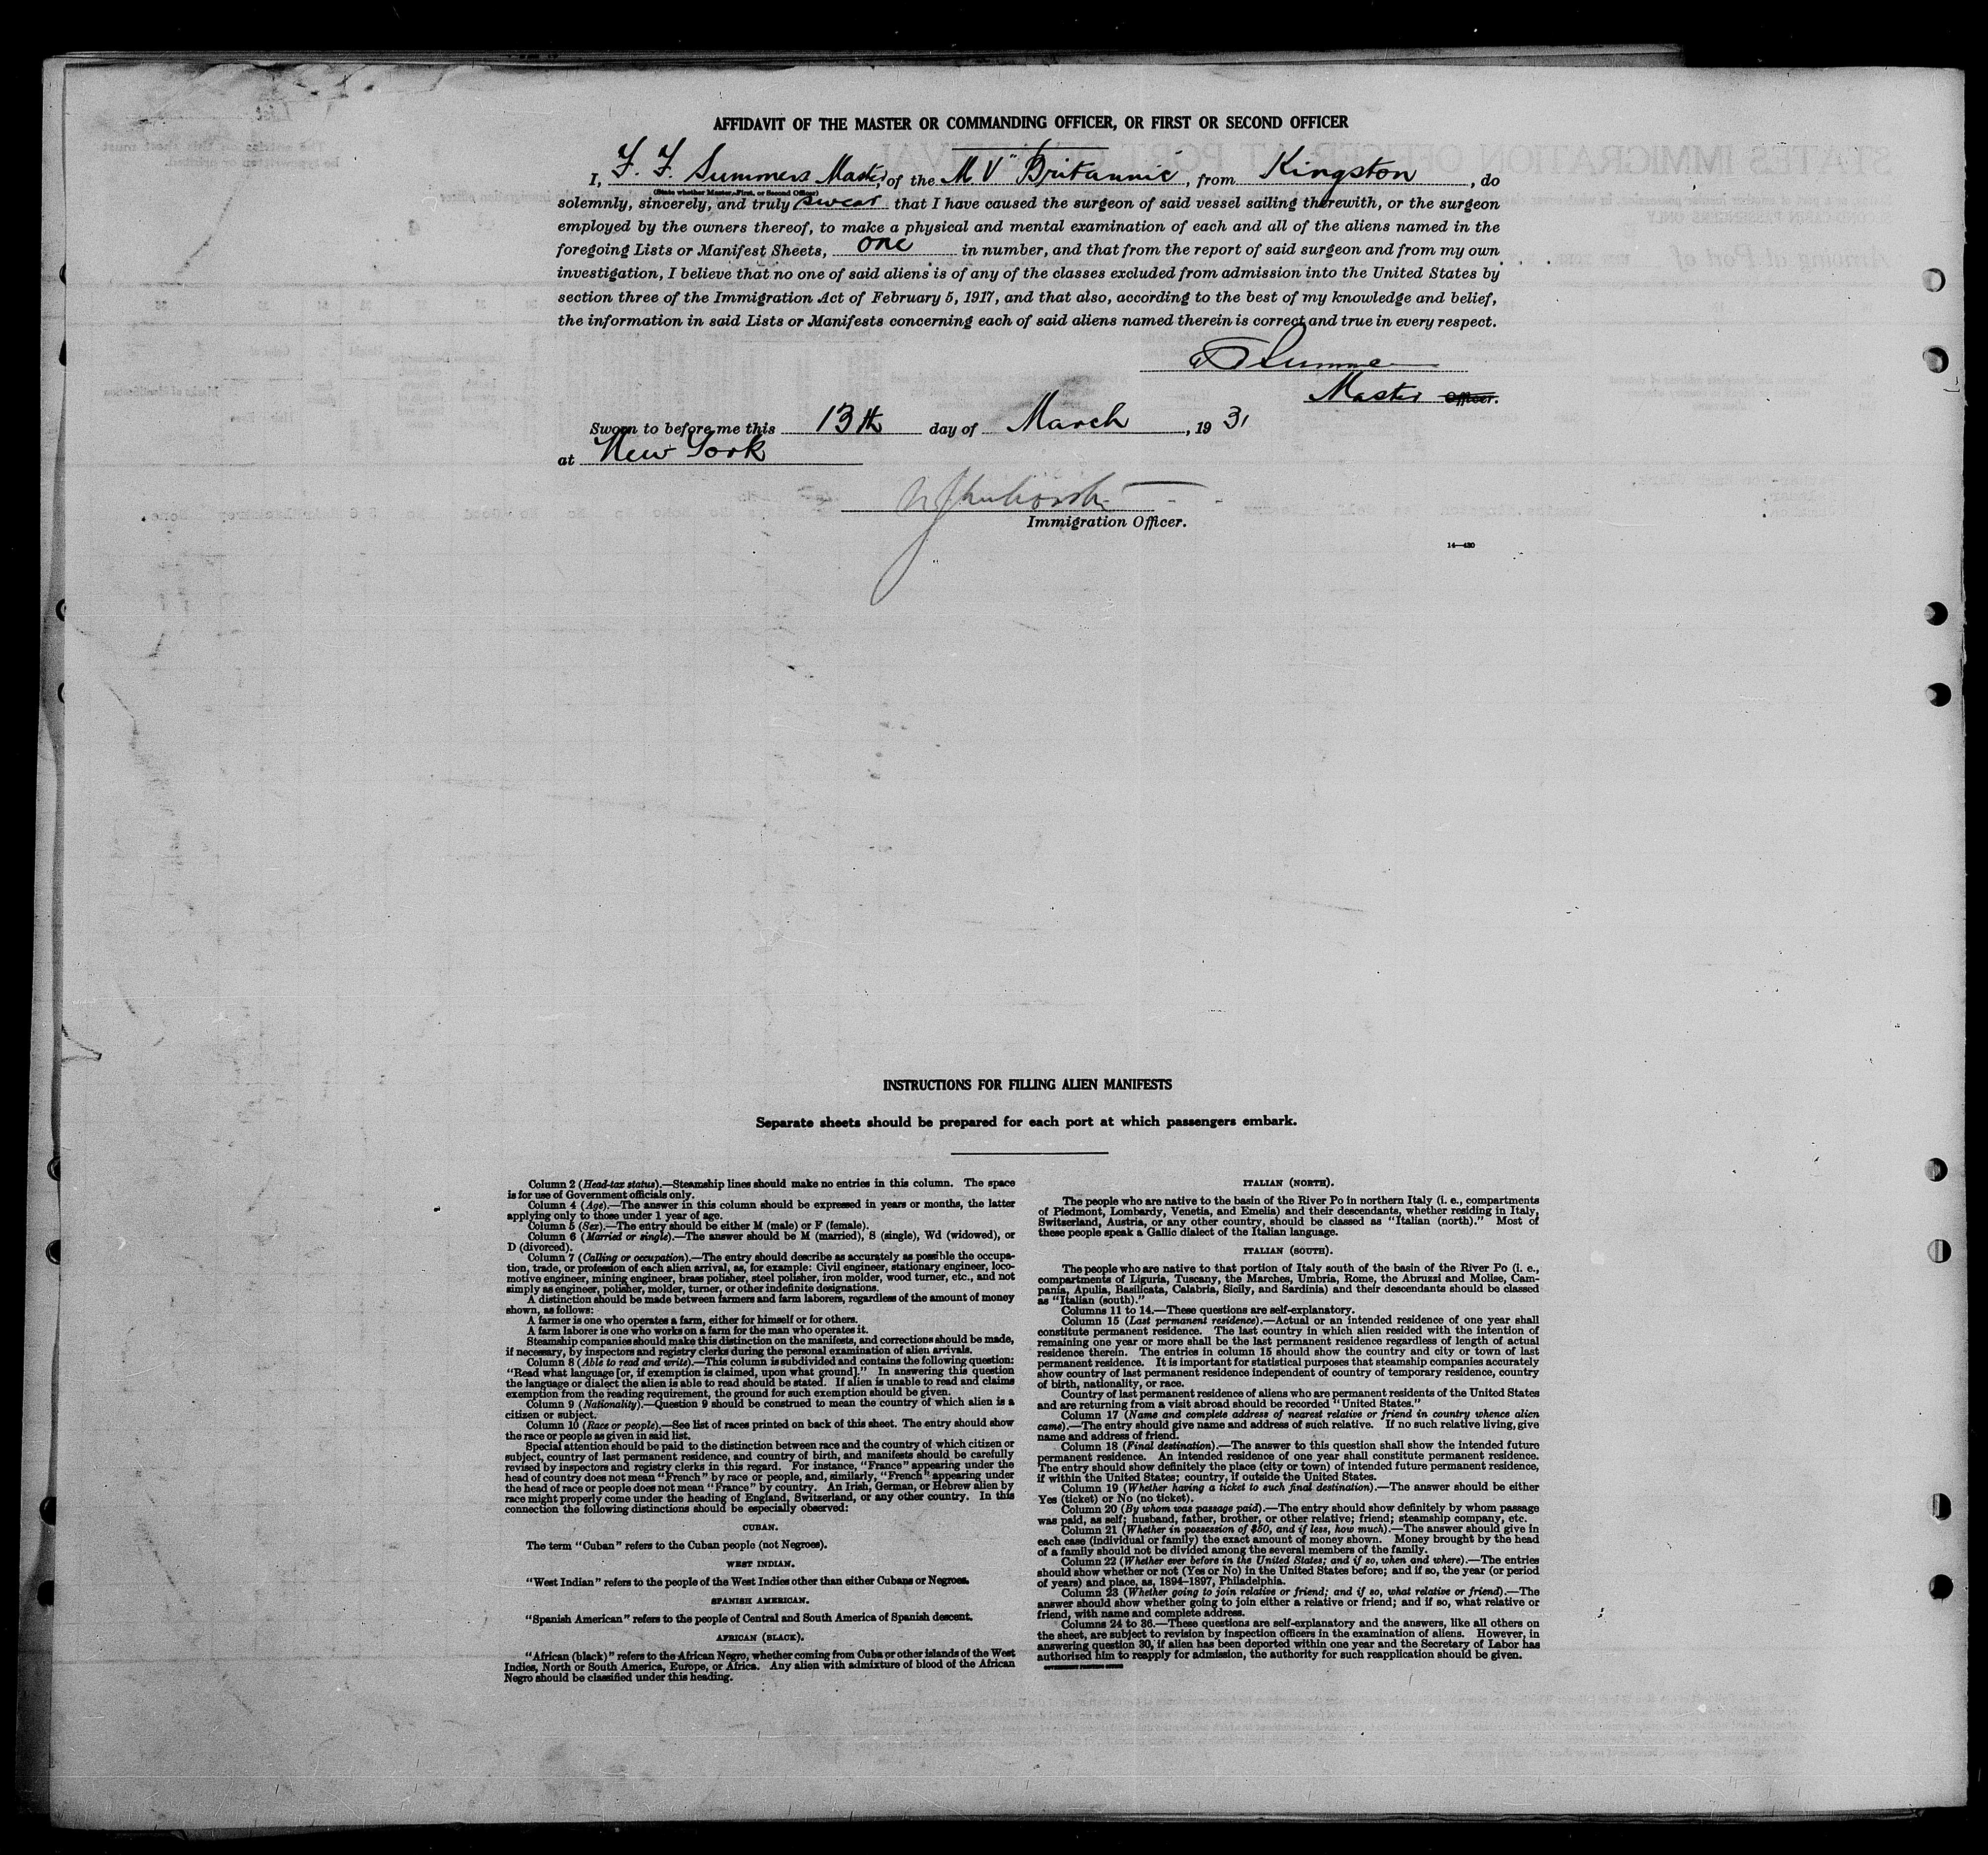 AFFIDAVIT OF THE MASTER OR COMMANDING OFFICER, OR FIRST OR SECOND OFFICER
I, F. F. Summers Master, of the M.V "Britannic, from Kingston, do
(State whether Master, First, or Second Officer)
solemnly, sincerely, and truly swear that I have caused the surgeon of said vessel sailing therewith, or the surgeon
employed by the owners thereof, to make a physical and mental examination of each and all of the aliens named in the
foregoing Lists or Manifest Sheets, one in number, and that from the report of said surgeon and from my own
investigation, I believe that no one of said aliens is of any of the classes excluded from admission into the United States by
section three of the Immigration Act of February 5, 1917, and that also, according to the best of my knowledge and belief,
the information in said Lists or Manifests concerning each of said aliens named therein is correct and true in every respect.
Master Officer.
Sworn to before me this 13th day of March, 1931
at New York
Immigration Officer.
14—430
INSTRUCTIONS FOR FILLING ALIEN MANIFESTS
Separate sheets should be prepared for each port at which passengers embark.
Column 2 (Head-tax status).—Steamship lines should make no entries in this column. The space
is for use of Government officials only.
Column 4 (Age).—The answer in this column should be expressed in years or months, the latter
applying only to those under 1 year of age.
Column 5 (Sex).—The entry should be either M (male) or F (female).
Column 6 (Married or single).—The answer should be M (married), S (single), Wd (widowed), or
D (divorced).
Column 7 (Calling or occupation).—The entry should describe as accurately as possible the occupa-
tion, trade, or profession of each alien arrival, as, for example: Civil engineer, stationary engineer, loco-
motive engineer, mining engineer, brass polisher, steel polisher, iron molder, wood turner, etc., and not
simply as engineer, polisher, molder, turner, or other indefinite designations.
A distinction should be made between farmers and farm laborers, regardless of the amount of money
shown, as follows:
A farmer is one who operates a farm, either for himself or for others.
A farm laborer is one who works on a farm for the man who operates it.
Steamship companies should make this distinction on the manifests, and corrections should be made,
if necessary, by inspectors and registry clerks during the personal examination of alien arrivals.
Column 8 (Able to read and write).—This column is subdivided and contains the following question:
"Read what language [or, if exemption is claimed, upon what ground]." In answering this question
the language or dialect the alien is able to read should be stated. If alien is unable to read and claims
exemption from the reading requirement, the ground for such exemption should be given.
Column 9 (Nationality).—Question 9 should be construed to mean the country of which alien is a
citizen or subject.
Column 10 (Race or people).—See list of races printed on back of this sheet. The entry should show
the race or people as given in said list.
Special attention should be paid to the distinction between race and the country of which citizen or
subject, country of last permanent residence, and country of birth, and manifests should be carefully
revised by inspectors and registry clerks in this regard. For instance, "France" appearing under the
head of country does not mean "French" by race or people, and, similarly, "French" appearing under
the head of race or people does not mean "France" by country. An Irish, German, or Hebrew alien by
race might properly come under the heading of England, Switzerland, or any other country. In this
connection the following distinctions should be especially observed:
CUBAN.
The term "Cuban" refers to the Cuban people (not Negroes).
WEST INDIAN.
"West Indian" refers to the people of the West Indies other than either Cubans or Negroes.
SPANISH AMERICAN.
"Spanish American" refers to the people of Central and South America of Spanish descent.
AFRICAN (BLACK).
"African (black)" refers to the African Negro, whether coming from Cuba or other islands of the West
Indies, North or South America, Europe, or Africa. Any alien with admixture of blood of the African
Negro should be classified under this heading.
ITALIAN (NORTH).
The people who are native to the basin of the River Po in northern Italy (i. e., compartments
of Piedmont, Lombardy, Venetia, and Emelia) and their descendants, whether residing in Italy,
Switzerland, Austria, or any other country, should be classed as "Italian (north)." Most of
these people speak a Gallic dialect of the Italian language.
ITALIAN (SOUTH).
The people who are native to that portion of Italy south of the basin of the River Po (i. e.,
compartments of Liguria, Tuscany, the Marches, Umbria, Rome, the Abruzzi and Molise, Cam-
pania, Apulia, Basilicata, Calabria, Sicily, and Sardinia) and their descendants should be classed
as "Italian (south)."
Columns 11 to 14.—These questions are self-explanatory.
Column 15 (Last permanent residence).—Actual or an intended residence of one year shall
constitute permanent residence. The last country in which alien resided with the intention of
remaining one year or more shall be the last permanent residence regardless of length of actual
residence therein. The entries in column 15 should show the country and city or town of last
permanent residence. It is important for statistical purposes that steamship companies accurately
show country of last permanent residence independent of country of temporary residence, country
of birth, nationality, or race.
Country of last permanent residence of aliens who are permanent residents of the United States
and are returning from a visit abroad should be recorded "United States."
Column 17 (Name and complete address of nearest relative or friend in country whence alien
came).—The entry should give name and address of such relative. If no such relative living, give
name and address of friend.
Column 18 (Final destination).—The answer to this question shall show the intended future
permanent residence. An intended residence of one year shall constitute permanent residence.
The entry should show definitely the place (city or town) of intended future permanent residence,
if within the United States; country, if outside the United States.
Column 19 (Whether having a ticket to such final destination).—The answer should be either
Yes (ticket) or No (no ticket).
Column 20 (By whom was passage paid).—The entry should show definitely by whom passage
was paid, as self; husband, father, brother, or other relative; friend; steamship company, etc.
Column 21 (Whether in possession of $50, and if less, how much).—The answer should give in
each case (individual or family) the exact amount of money shown. Money brought by the head
of a family should not be divided among the several members of the family.
Column 22 (Whether ever before in the United States; and if so, when and where).—The entries
should show whether or not (Yes or No) in the United States before; and if so, the year (or period
of years) and place, as, 1894–1897, Philadelphia.
Column 23 (Whether going to join relative or friend; and if so, what relative or friend).—The
answer should show whether going to join either a relative or friend; and if so, what relative or
friend, with name and complete address.
Columns 24 to 36.—These questions are self-explanatory and the answers, like all others on
the sheet, are subject to revision by inspection officers in the examination of aliens. However, in
answering question 30, if alien has been deported within one year and the Secretary of Labor has
authorized him to reapply for admission, the authority for such reapplication should be given.